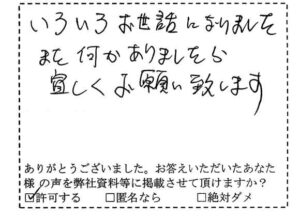 いろいろお世話になりました
また何かありましたら
宜しくお願い致します
ありがとうございました。お答えいただいたあなた
様の声を弊社資料等に掲載させて頂けますか？
☑許可する　□匿名なら　□絶対ダメ